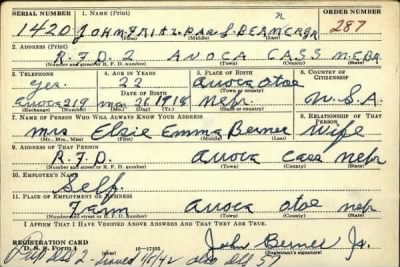 SERIAL NUMBER 1. NAME (Print) ORDER NUMBER
1420 JOHN BERNER JR 287
(First) (Middle) (Last)
2. ADDRESS (Print)
R.F.D. 2 AVOCA CASS NEBR
(Number and street or R. F. D. number) (Town) (County) (State)
3. TELEPHONE 4. AGE IN YEARS 5. PLACE OF BIRTH 6. COUNTRY OF CITIZENSHIP
yes. 22 Avoca Otoe
DATE OF BIRTH (Town or county)
Avoca 219 Mar 26 1918 nebr. U.S.A.
(Exchange) (Number) (Mo.) (Day) (Yr.) (State or country)
7. NAME OF PERSON WHO WILL ALWAYS KNOW YOUR ADDRESS 8. RELATIONSHIP OF THAT PERSON
Mrs Elsie Emma Berner Wife
(Mr., Mrs., Miss) (First) (Middle) (Last)
9. ADDRESS OF THAT PERSON
R.F.D. Avoca Cass nebr
(Number and street or R. F. D. number) (Town) (County) (State)
10. EMPLOYER'S NAME
Self.
11. PLACE OF EMPLOYMENT OR BUSINESS
Farm Avoca Otoe nebr
(Number and street or R. F. D. number) (Town) (County) (State)
I AFFIRM THAT I HAVE VERIFIED ABOVE ANSWERS AND THAT THEY ARE TRUE.
REGISTRATION CARD
D. S. S. Form 1 16-17105 John Berner Jr.
(Registrant's signature)